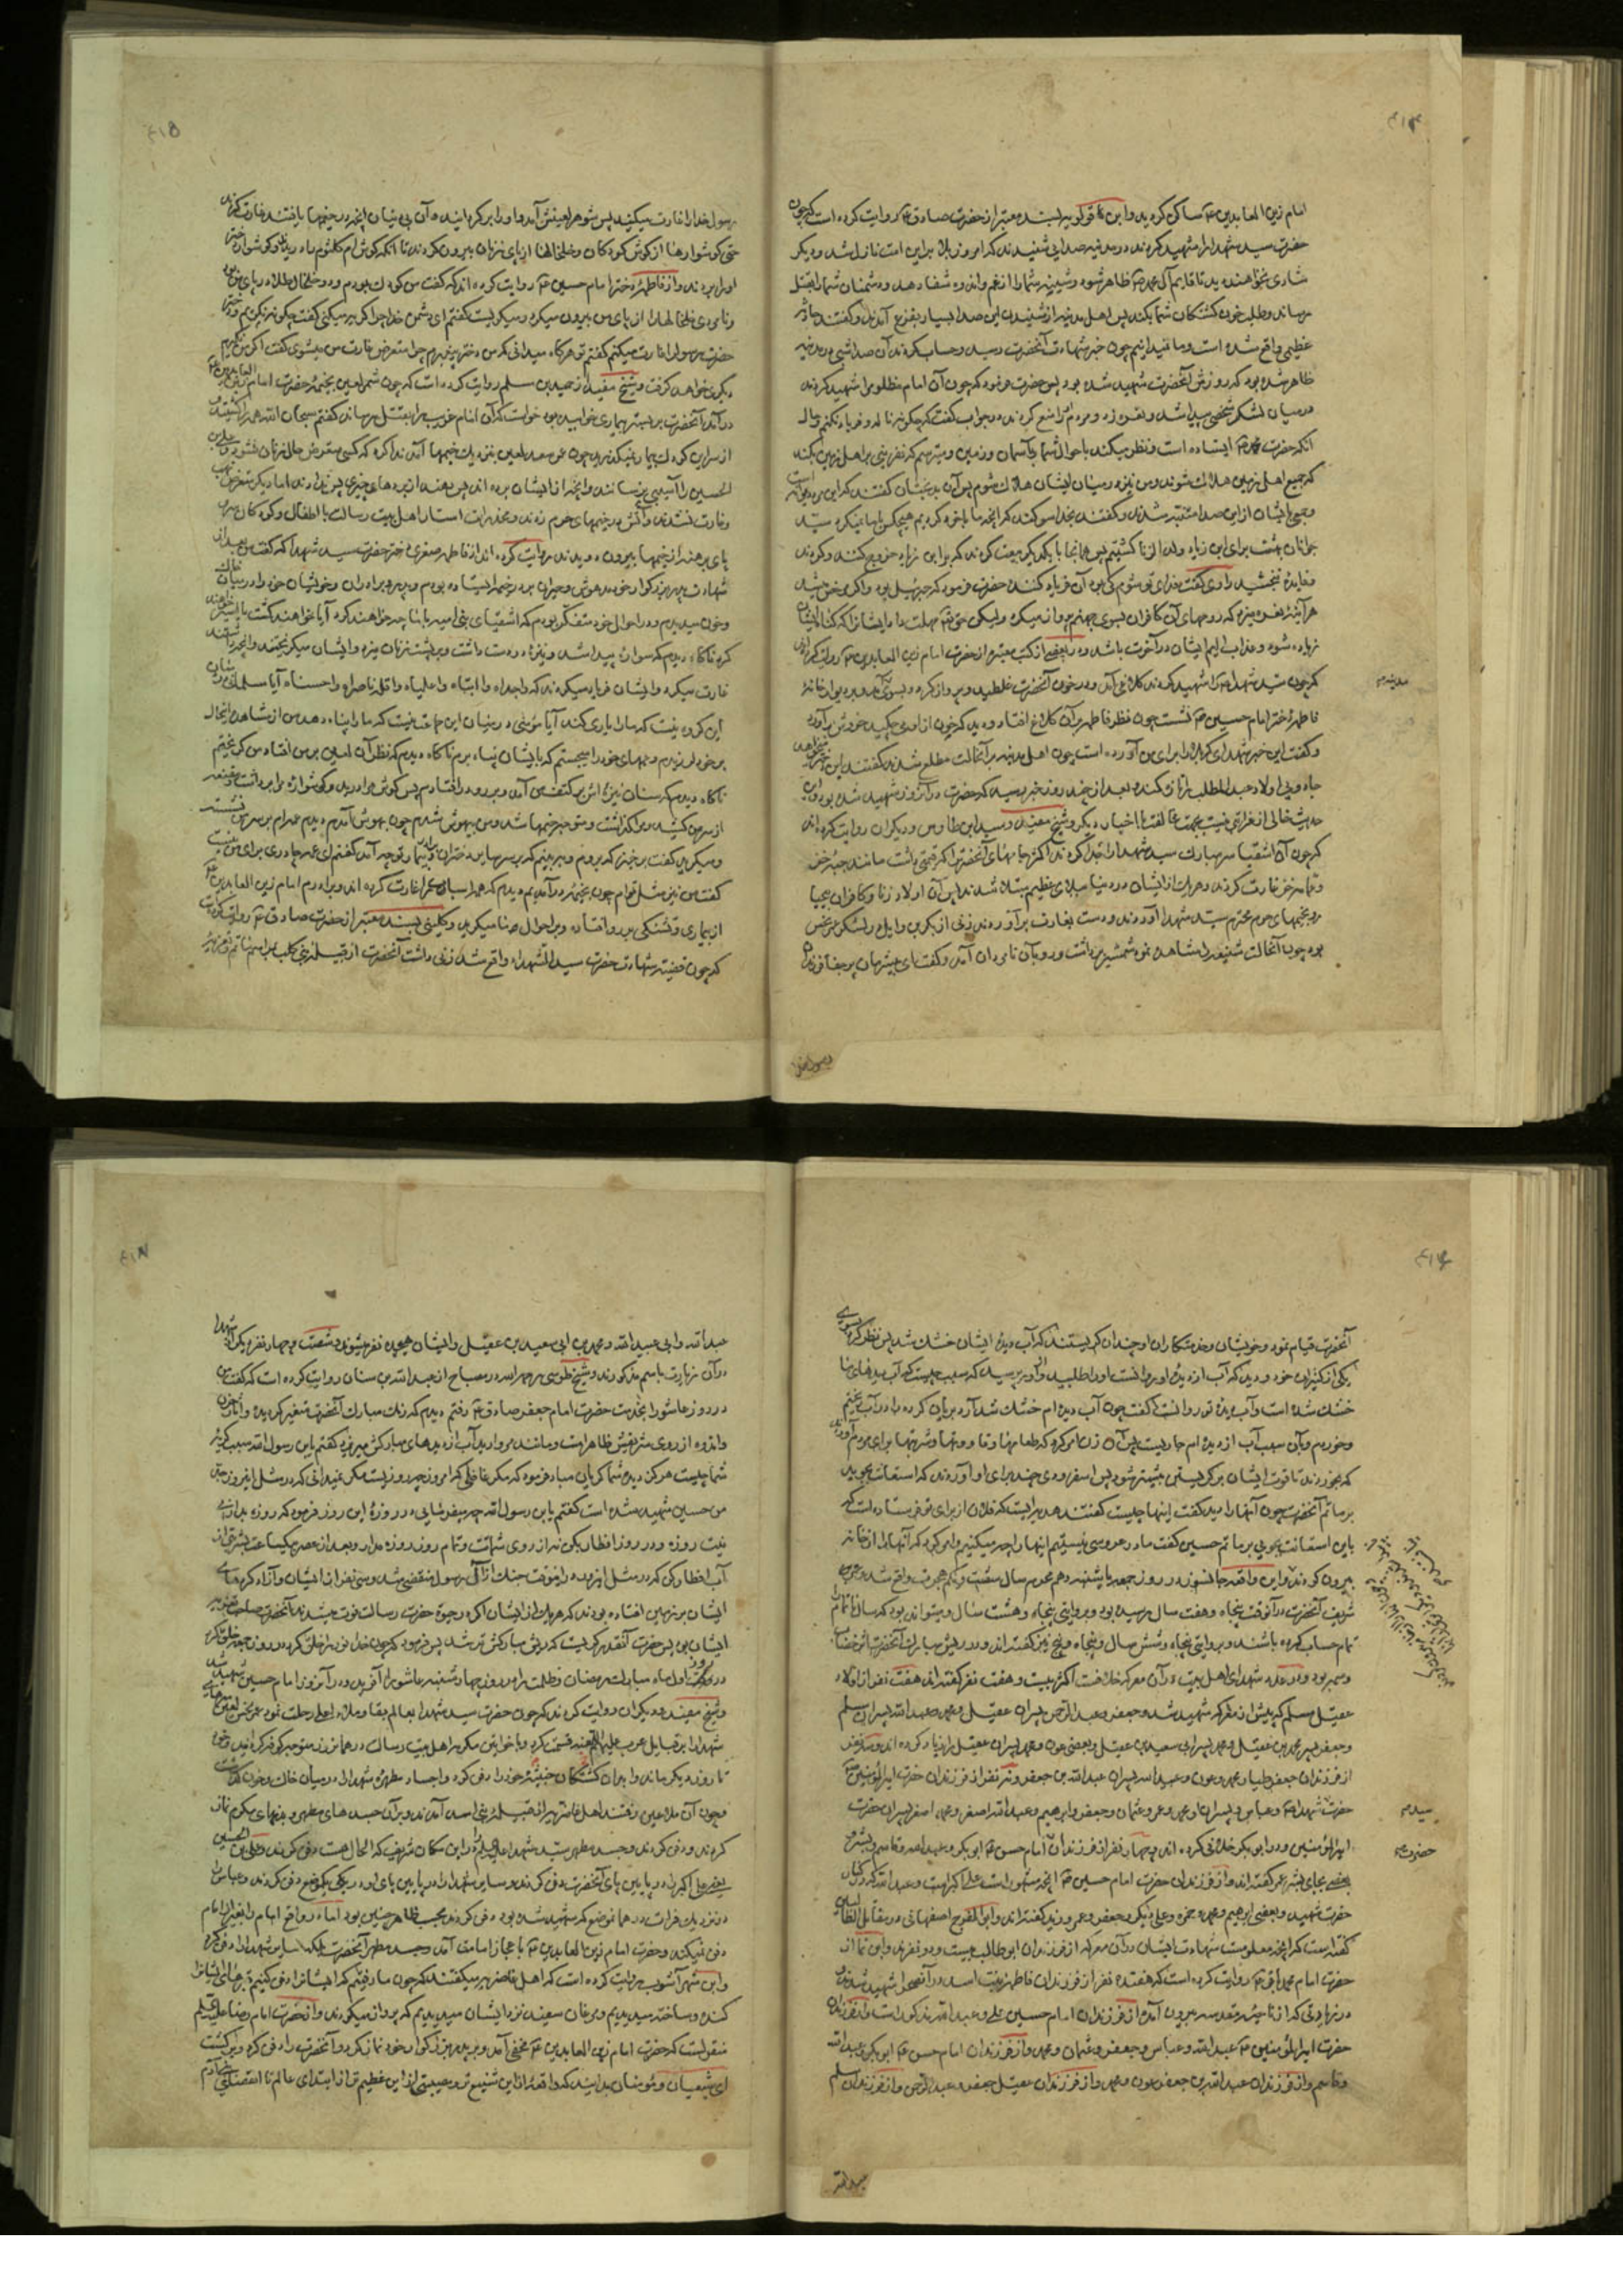 ۴۱۴
امام زین العابدین ع ساکن گردید و ابن قولویه بسند معتبر از حضرت صادق ع روایت کرده است که چون
حضرت سید شهدا را شهید کردند در مدینه صدایی شنیدند که امروز بلا بر این امت نازل شد و دیگر
شادی نخواهند دید تا قایم آل محمد ص ظاهر شود و سینهٔ شما را از غم و اندوه شفا دهد و دشمنان شما را بقتل
رساند و طلب خون کشتگان شما بکند پس اهل مدینه از شنیدن این صدا بسیار بفزع آمدند و گفتند حادثه
عظیمی واقع شده است و ما نمیدانیم چون خبر شهادت آنحضرت رسید و حساب کردند آن صدا شبی در مدینه
ظاهر شده بود که روزش آنحضرت شهید شده بود پس حضرت فرمود که چون آن امام مظلوم را شهید کردند
در میان لشکر شخصی پیدا شد و نعره زد و مردم او را منع کردند در جواب گفت که چگونه ناله و فریاد نکنم و حال
آنکه حضرت محمد ص ایستاده است و نظر میکند باحوال شما و بآسمان و زمین و میترسم که نفرینی بر اهل زمین بکند
که جمیع اهل زمین هلاک شوند و من نیز در میان ایشان هلاک شوم پس آن بدبختان گفتند که این مرد دیوانه است
و جمعی ایشان از این صدا متنبه شدند و گفتند بخدا سوگند که آنچه ما با خود کردیم هیچکس با ما نمیکرد سید
جوانان بهشت برای ابن زیاد ولد الزنا کشتیم پس همانجا با یکدیگر بیعت کردند که بر ابن زیاد خروج کنند و کردند
و فایده نبخشید راوی گفت فدای تو شوم کی بود آن فریاد کننده حضرت فرمود که جبرئیل بود و اگر مرخص میشد
هر آینه نعره میزد که روحهای آن کافران بسوی جهنم پرواز میکرد ولیکن حق تعالی مهلت داد ایشانرا که گناه ایشان
زیاده شود و عذاب الیم ایشان در آخرت باشد و در بعضی از کتب معتبره از حضرت امام زین العابدین ع روایت کرده اند
که چون سید شهدا ع را شهید کردند کلاغی آمد و در خون آنحضرت غلطید و پرواز کرد و بسوی مدینه بر دیوار خانهٔ
مدینه
فاطمه دختر امام حسین ع نشست چون نظر فاطمه بر آن کلاغ افتاد و دید که خون از او میچکید خروش برآورد
و گفت این خبر شهدای کربلا را برای من آورده است چون اهل مدینه بر آنحالت مطلع شدند گفتند این میخواهد
جادویی اولاد عبد المطلب را تازه کند و بعد از چند روز خبر رسید که حضرت در آنروز شهید شده بود و این
حدیث خالی از غرابتی نیست بجهت مخالفت با اخبار دیگر و شیخ مفید و سید ابن طاوس و دیگران روایت کرده اند
که چون آن اشقیا سر مبارک سید شهدا را جدا کردند اکثر جامهای آنحضرت را که قیمتی داشت مانند جبه خز
و عمامه خز غارت کردند و هر یک از ایشان در دنیا ببلای عظیم مبتلا شدند پس آن اولاد زنا و کافران بیحیا
رو بخیمهای حرم محترم سید شهدا آوردند و دست بغارت برآوردند زنی از بکر بن وایل در لشکر عمر نحس
بود چون آنحالت شنیع را مشاهده نمود شمشیر برداشت و رو بآن نامردان آمد و گفت ای بیشرمان پر جفا فرزندان
رسول خدا
۴۱۵
رسول خدا را غارت میکنید پس شوهر لعینش آمد و او را برگردانید و آن بی دینان آنچه در خیمها یافتند غارت کردند
حتی گوشوارها از گوش کودکان و خلخالها از پای زنان بیرون کردند تا آنکه گوش ام کلثوم را دریدند و گوشوارهای
او را بردند و از فاطمه دختر امام حسین ع روایت کرده اند که گفت من کودک بودم و دو خلخال طلا در پای من بود
و نامردی خلخالها را از پای من بیرون میکرد و میگریست گفتم ای دشمن خدا چرا گریه میکنی گفت چگونه نگریم و دختر
حضرت رسول را غارت میکنم گفتم تو هر گاه میدانی که من دختر پیغمبرم چرا متعرض غارت من میشوی گفت اگر من نگیرم
دیگری خواهد گرفت و شیخ مفید از حمید بن مسلم روایت کرده است که چون شمر لعین بخیمهٔ حضرت امام زین العابدین ع
درآمد آنحضرت بر بستر بیماری خوابیده بود خواست که آن امام غریب را بقتل رساند گفتم سبحان الله همه را کشتید
از سر این کودک بیمار نمیگذرید چون عمر سعد لعین بنزدیک خیمها آمد ندا کرد که کسی متعرض حال زنان نشود و علی بن
الحسین را آسیبی نرسانند و آنچه از ایشان برده اند پس دهند از بردهای چیزی پس ندادند اما دیگر متعرض نهب
و غارت نشدند و آتش در خیمهای حرم زدند و مخدرات استار اهل بیت رسالت با اطفال و کودکان سر و
پای برهنه از خیمها بیرون دویدند روایت کرده اند از فاطمه صغری دختر حضرت سید شهدا که گفت من بعد از
شهادت پدر بزرگوار خود مدهوش و حیران بر در خیمه ایستاده بودم و پدر و برادران و خویشان خود را در میان خاک
و خون میدیدم و در احوال خود متفکر بودم که اشقیای بنی امیه با ما چه خواهند کرد آیا خواهند کشت یا اسیر خواهند
کرد ناگاه دیدم که سواری پیدا شد و نیزهٔ در دست داشت و بر پشت زنان میزد و ایشان میگریختند و آنچه داشتند
غارت میکرد و ایشان فریاد میکردند که واجداه و ابتاه و اعلیاه و اقله ناصراه و احسناه آیا مسلمانی در میان
این گروه نیست که ما را یاری کند آیا مؤمنی در میان این جماعت نیست که ما را پناه دهد من از مشاهده آنحال
بر خود لرزیدم و عمهای خود را میجستم که بایشان پناه برم ناگاه دیدم که نظر آن لعین بر من افتاد من گریختم
ناگاه دیدم که سنان نیزهٔ او بر کتف من آمد و بر رو در افتادم پس گوش مرا درید و گوشوارهٔ مرا برداشت و مقنعه
از سر من کشید و مرا گذاشت و متوجه خیمها شد و من بیهوش شدم چون بهوش آمدم دیدم عمه ام بر سر من نشسته
و میگرید گفت برخیز که برویم و ببینیم که بر سر سایر دختران و برادر بیمار تو چه آمد گفتم ای عمه چادری برای من نیست
گفت من نیز مثل توام چون بخیمه درآمدیم دیدم که همهٔ اسباب ما را غارت کرده اند و برادرم امام زین العابدین ع
از بیماری و تشنگی بر رو افتاده و بر احوال ما میگرید و کلینی بسند معتبر از حضرت صادق ع روایت کرده است
که چون قضیهٔ شهادت حضرت سید الشهداء واقع شد زنی داشت آنحضرت از قبیلهٔ بنی کلب
۴۱۶
آنحضرت قیام نمود و خویشان و خدمتکاران او چندان گریستند که آب دیدهٔ ایشان خشک شد پس نظر کرد بسوی
یکی از کنیزان خود و دید که آب از دیدهٔ او روانست او را طلبید و از او پرسید که سبب چیست که آب دیدهای ما
خشک شده است و آب دیدهٔ تو روانست گفت چون آب دیده ام خشک شد آرد بریان کرده را در آب ریختم
و خوردم و بآن سبب آب از دیده ام جاریست پس آن زن امر کرد که طعامها و قاووتها و شربتها برای مردم آوردند
که بخوردند تا قوت ایشان بر گریستن بیشتر شود پس اسفرودی چند برای او آوردند که استعانت بجوید
بر ماتم آنحضرت چون آنها را دید گفت اینها چیست گفتند هدیه ایست که فلان از برای تو فرستاده است که
باین استعانت بجویی بر ماتم حسین گفت ما در عروسی نیستیم اینها را چه میکنیم و امر کرد که آنها را از خانه
بیرون کردند و این واقعه جانسوز در روز جمعه یا شنبه دهم محرم سال شصت و یکم هجرت واقع شد و عمر
شریف آنحضرت در آنوقت پنجاه و هفت سال رسیده بود و بروایتی پنجاه و هشت سال و میتواند بود که سال ناتمام را
تمام حساب کرده باشند و بروایتی پنجاه و شش سال و پنجاه و پنج نیز گفته اند و در ریش مبارک آنحضرت اثر خضاب
وسمه بود و در عدد شهدای اهل بیت در آن معرکه خلافست اکثر بیست و هفت نفر گفته اند هفت نفر از اولاد
عقیل مسلم که پیش از معرکه شهید شد و جعفر و عبد الرحمن پسران عقیل و محمد و عبد الله پسران مسلم
و جعفر پسر محمد بن عقیل و محمد پسر ابی سعید بن عقیل و بعضی عون و محمد پسران عقیل را زیاد کرده اند و سه نفر
از فرزندان جعفر طیار محمد و عون و عبید الله پسران عبد الله بن جعفر و نه نفر از فرزندان حضرت امیر المؤمنین ع
حضرت شهدا و عباس و پسران او محمد و عمر و عثمان و جعفر و ابراهیم و عبد الله اصغر و محمد اصغر پسران حضرت
سید
امیر المؤمنین و در ابو بکر خلاف کرده اند و چهار نفر از فرزندان امام حسن ع ابو بکر و عبد الله و قاسم و بشر و
حضرت
بعضی بجای بشر عمر گفته اند و از فرزندان حضرت امام حسین ع آنچه مشهور است علی اکبر است و عبد الله که در کنار
حضرت شهید و بعضی ابراهیم و محمد و حمزه و علی دیگر و جعفر و عمر و زید گفته اند و ابو الفرج اصفهانی در مقاتل الطالبین
گفته است که آنچه معلومست شهادت ایشان در آن معرکه از فرزندان ابو طالب بیست و دو نفرند و ابن نما از
حضرت امام محمد باقر ع روایت کرده است که هفده نفر از فرزندان فاطمه بنت اسد در آنصحرا شهید شدند
در زیارتی که از ناحیهٔ مقدسه بیرون آمده از فرزندان امام حسین علی و عبد الله مذکور است و از فرزندان
حضرت امیر المؤمنین ع عبد الله و عباس و جعفر و عثمان و محمد و از فرزندان امام حسن ع ابو بکر و عبد الله
و قاسم و از فرزندان عبد الله بن جعفر عون و محمد و از فرزندان عقیل جعفر و عبد الرحمن و از فرزندان مسلم
عبد الله
۴۱۷
عبد الله و ابی عبید الله و محمد بن ابی سعید بن عقیل و ایشان هیجده نفر میشوند و شصت و چهار نفر دیگر از شهدا
در آن زیارت باسم مذکورند و شیخ طوسی رحمه الله در مصباح از عبد الله بن سنان روایت کرده است که گفت من
در روز عاشورا بخدمت حضرت امام جعفر صادق ع رفتم دیدم که رنگ مبارک آنحضرت متغیر گردیده و آثار حزن
و اندوه از روی شریفش ظاهر است و مانند مروارید آب از دیدهای مبارکش میریزد گفتم یابن رسول الله سبب گریهٔ
شما چیست هرگز دیدهٔ شما گریان مباد فرمود که مگر غافلی که امروز چه روزیست مگر نمیدانی که در مثل این روز جد
من حسین شهید شده است گفتم یابن رسول الله چه میفرمایی در روزهٔ این روز فرمود که روزه بدار بی
نیت روزه و در روز افطار بکن نه از روی شماتت و تمام روز روزه مدار و بعد از عصر بیکساعت بشربتی از
آب افطار کن که در مثل این روز در اینوقت جنک از آل رسول منقضی شد و سی نفر از ایشان و آزاد کردهای
ایشان بر زمین افتاده بودند که هر یک از ایشان اگر در حیوة حضرت رسالت فوت میشدند آنحضرت صاحب تعزیهٔ
ایشان بود پس حضرت آنقدر گریست که ریش مبارکش تر شد پس فرمود که چون خدا نور را خلق کرد در روز جمعه خلق کرد
در روز اول ماه مبارک رمضان و ظلمت را در روز چهارشنبه عاشورا آفرید و در آنروز امام حسین شهید شد
و شیخ مفید و دیگران روایت کردند که چون حضرت سید شهدا بعالم بقا و ملاء اعلی رحلت نمود عمر نحس لعین سرهای
شهدا را بر قبایل عرب علیهم اللعنه قسمت کرد و با خواتین مکرمهٔ اهل بیت رسالت در همان روز متوجه کوفه گردانید و خود
تا روز دیگر ماند و ابدان کشتگان خبیثهٔ خود را دفن کرد و اجساد مطهرهٔ شهدا را در میان خاک و خون گذاشت
و چون آن ملاعین رفتند اهل غاضریه از قبیلهٔ بنی اسد آمدند و بر آن جسدهای مطهر و بدنهای مکرم نماز
کردند و دفن کردند و جسد مطهر سید شهدا علیه السلام را در این مکان شریف که الحال هست دفن کردند و علی بن الحسین
یعنی علی اکبر را در پایین پای آنحضرت دفن کردند و سایر شهدا را در پایین پای او در یک موضع دفن کردند و عباس را
در نزدیک فرات در همانموضع که شهید شده بود دفن کردند بحسب ظاهر چنین بود اما در واقع امام را بغیر از امام
دفن نمیکند و حضرت امام زین العابدین ع باعجاز امامت آمد و جسد مطهر آنحضرت بلکه سایر شهدا را دفن کرد
و ابن شهر آشوب روایت کرده است که اهل غاضریه میگفتند که چون ما رفتیم که ایشانرا دفن کنیم قبرهای ایشانرا
کنده و ساخته میدیدیم و مرغان سفید نزد ایشان میدیدیم که پرواز میکردند و از حضرت امام رضا علیه السلم
منقولست که حضرت امام زین العابدین ع مخفی آمد و بر پدر بزرگوار خود نماز کرد و آنحضرت را دفن کرد و برگشت
ای شیعیان و مؤمنان بدانید که واقعهٔ از این شنیع تر و مصیبتی از این عظیم تر از ابتدای عالم تا انقضای بنی آدم